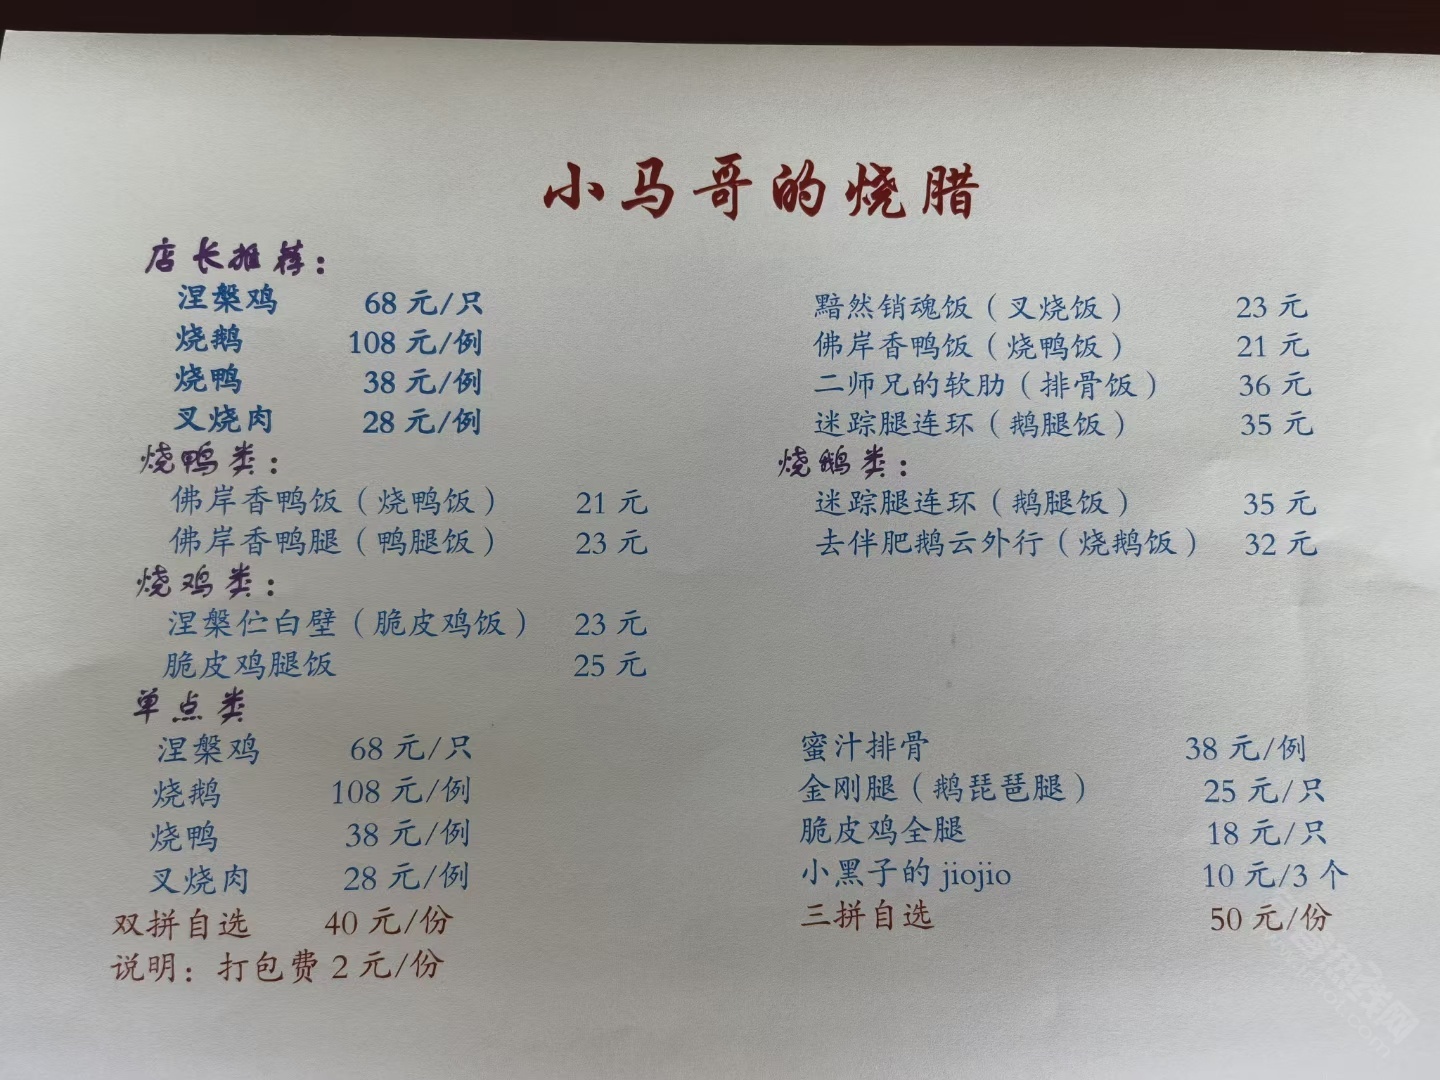 小马哥的烧腊
店长推荐：
涅槃鸡 68 元/只
烧鹅 108 元/例
烧鸭 38 元/例
叉烧肉 28 元/例
黯然销魂饭（叉烧饭） 23 元
佛岸香鸭饭（烧鸭饭） 21 元
二师兄的软肋（排骨饭） 36 元
迷踪腿连环（鹅腿饭） 35 元
烧鸭类：
佛岸香鸭饭（烧鸭饭） 21 元
佛岸香鸭腿（鸭腿饭） 23 元
烧鹅类：
迷踪腿连环（鹅腿饭） 35 元
去伴肥鹅云外行（烧鹅饭） 32 元
烧鸡类：
涅槃伫白壁（脆皮鸡饭） 23 元
脆皮鸡腿饭 25 元
单点类
涅槃鸡 68 元/只
烧鹅 108 元/例
烧鸭 38 元/例
叉烧肉 28 元/例
蜜汁排骨 38 元/例
金刚腿（鹅琵琶腿） 25 元/只
脆皮鸡全腿 18 元/只
小黑子的 jiojio 10 元/3 个
双拼自选 40 元/份
三拼自选 50 元/份
说明：打包费 2 元/份